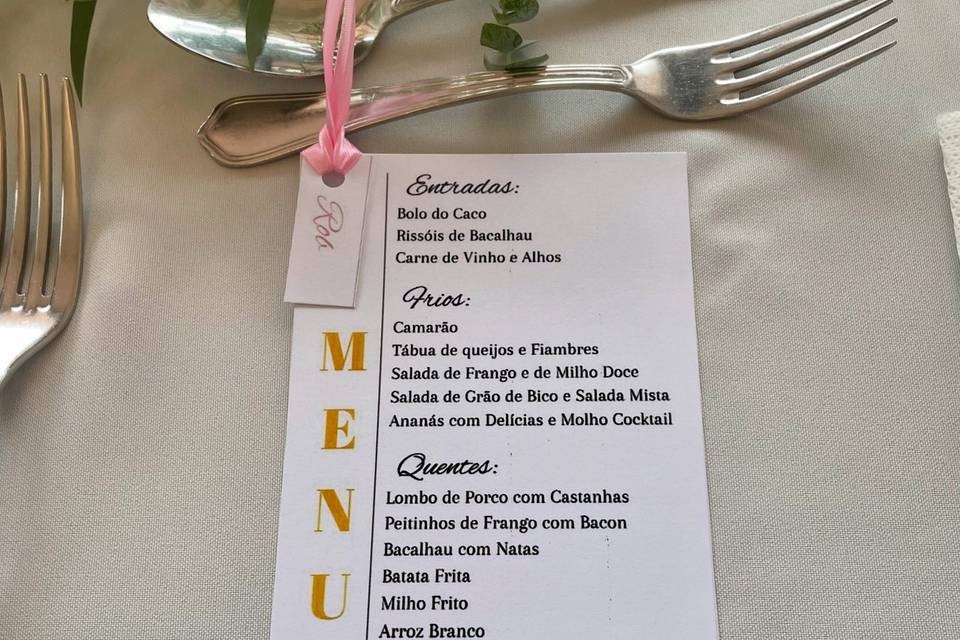 Rob
MENU
Entradas:
Bolo do Caco
Rissóis de Bacalhau
Carne de Vinho e Alhos
Frios:
Camarão
Tábua de queijos e Fiambres
Salada de Frango e de Milho Doce
Salada de Grão de Bico e Salada Mista
Ananás com Delícias e Molho Cocktail
Quentes:
Lombo de Porco com Castanhas
Peitinhos de Frango com Bacon
Bacalhau com Natas
Batata Frita
Milho Frito
Arroz Branco